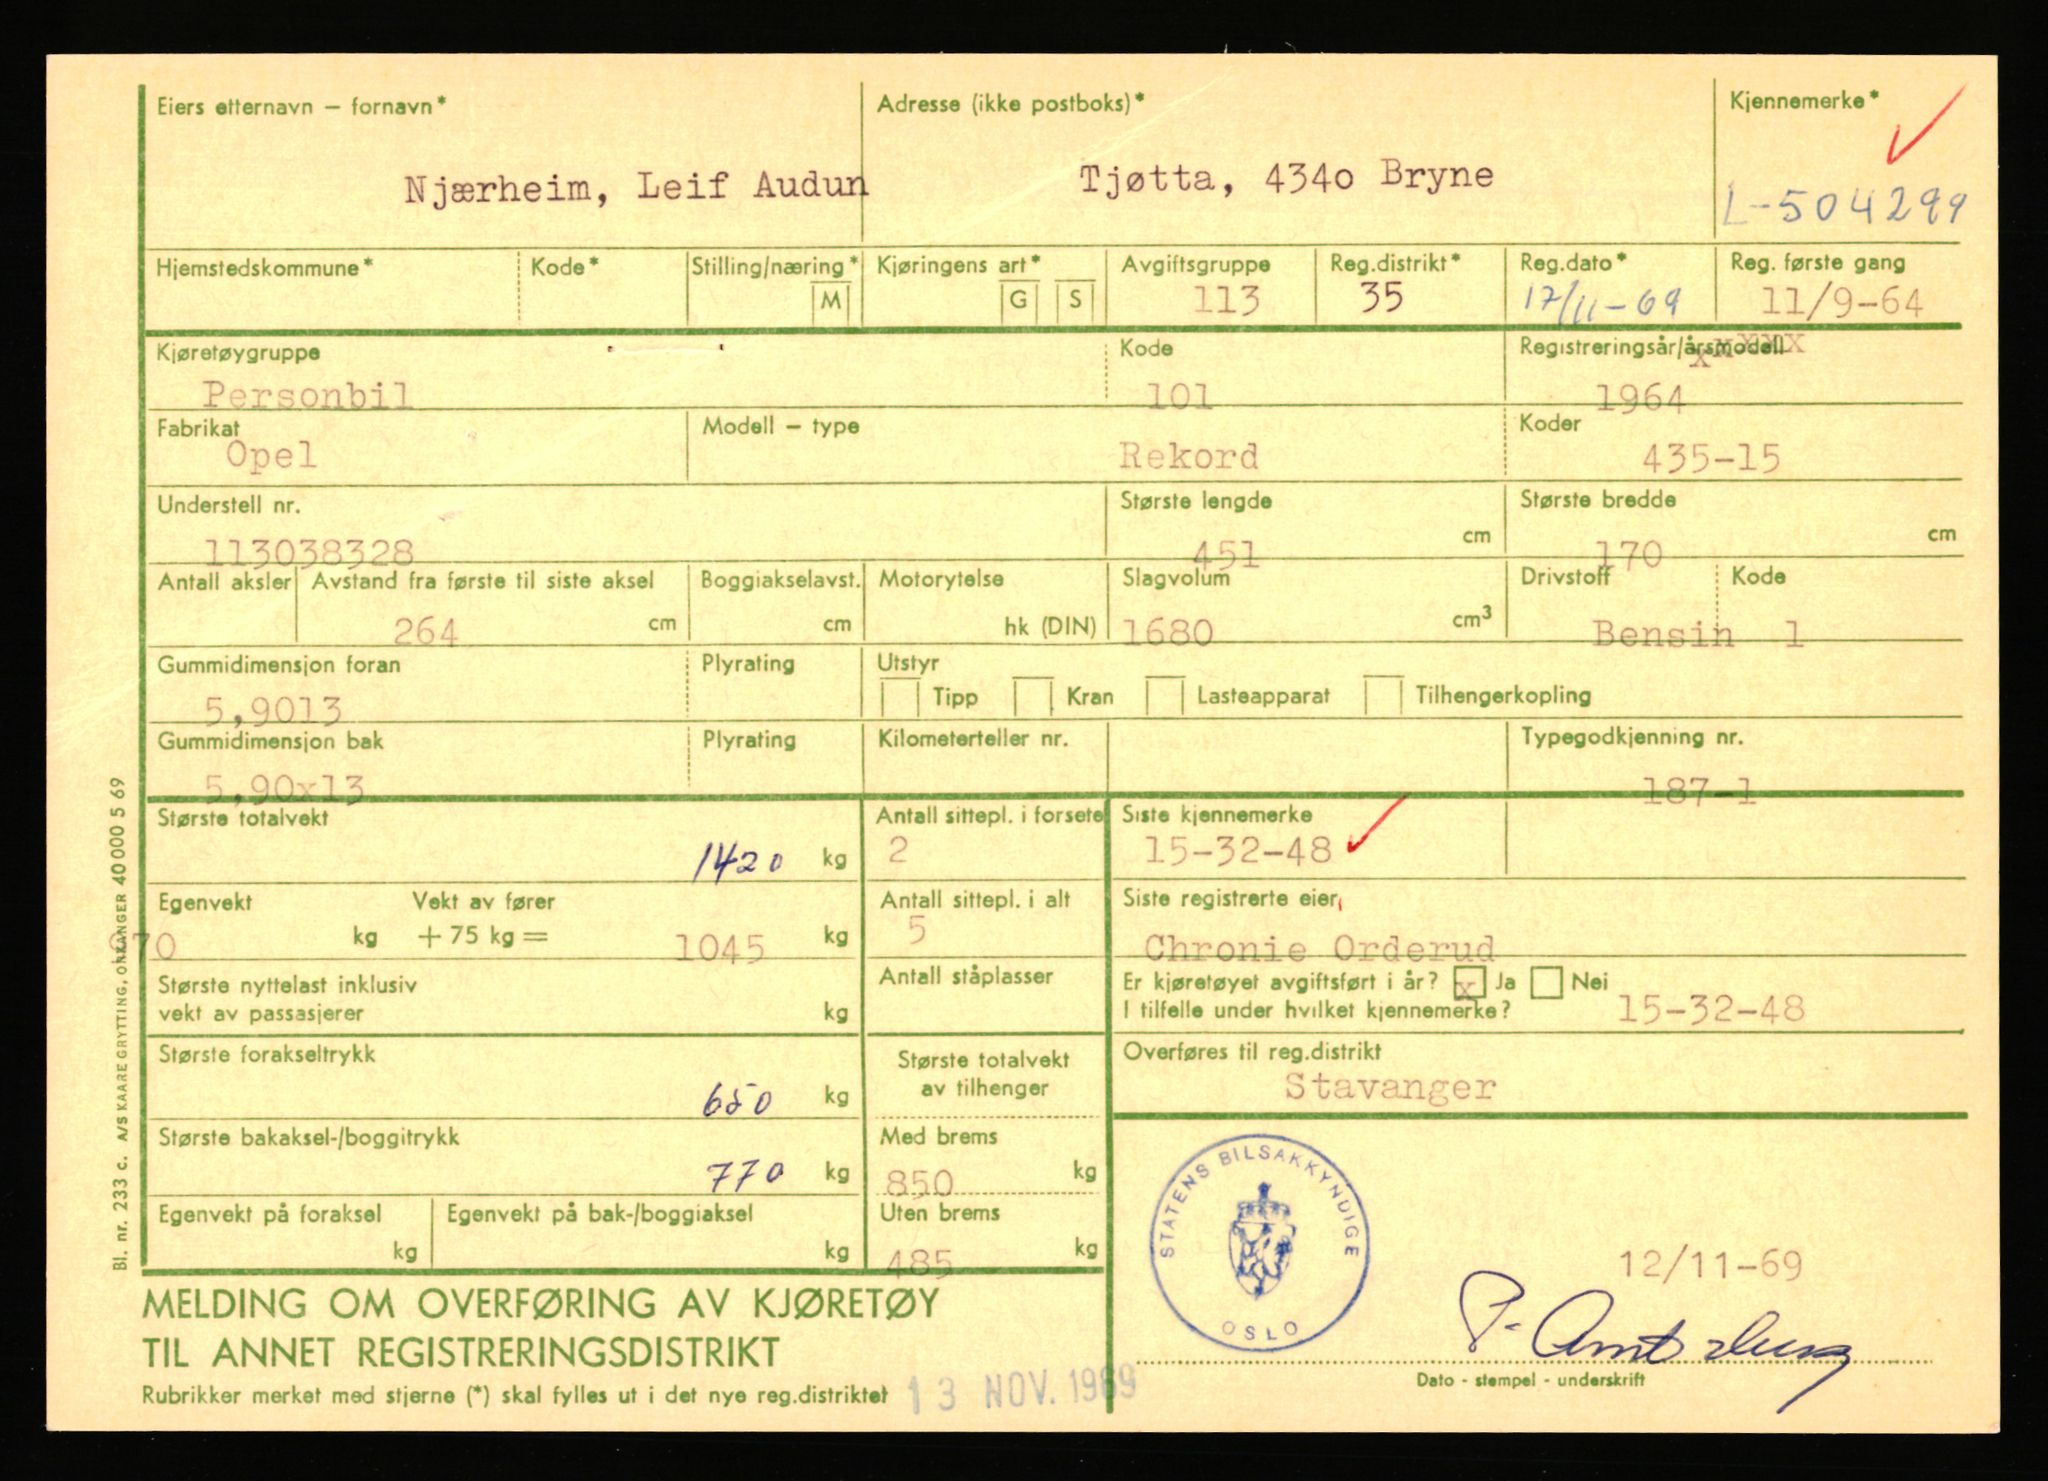 Eiers etternavn – fornavn*
Adresse (ikke postboks)*
Kjennemerke*
Njærheim, Leif Audun
Tjøtta, 434o Bryne
L-504299
Hjemstedskommune*
Kode*
Stilling/næring*
M
Kjøringens art*
G
S
Avgiftsgruppe
113
Reg.distrikt*
35
Reg.dato*
17/11-69
Reg. første gang
11/9-64
Kjøretøygruppe
Personbil
Kode
101
Registreringsår/årsmodell
xxxxxx
1964
Fabrikat
Opel
Modell – type
Rekord
Koder
435-15
Understell nr.
113038328
Største lengde
451
cm
Største bredde
170
cm
Antall aksler
Avstand fra første til siste aksel
264
cm
Boggiakselavst.
cm
Motorytelse
hk (DIN)
Slagvolum
1680
cm3
Drivstoff
Bensin
Kode
1
Gummidimensjon foran
5,9013
Plyrating
Utstyr
Tipp
Kran
Lasteapparat
Tilhengerkopling
Gummidimensjon bak
5,90x13
Plyrating
Kilometerteller nr.
Typegodkjenning nr.
187-1
Største totalvekt
1420 kg
Antall sittepl. i forsete
2
Siste kjennemerke
15-32-48
Egenvekt
970 kg
Vekt av fører
+ 75 kg =
1045 kg
Antall sittepl. i alt
5
Siste registrerte eier
Chronie Orderud
Største nyttelast inklusiv
vekt av passasjerer
kg
Antall ståplasser
Er kjøretøyet avgiftsført i år? x Ja Nei
I tilfelle under hvilket kjennemerke?
15-32-48
Største forakseltrykk
650 kg
Største totalvekt
av tilhenger
Overføres til reg.distrikt
Stavanger
Største bakaksel-/boggitrykk
770 kg
Med brems
850 kg
Egenvekt på foraksel
kg
Egenvekt på bak-/boggiaksel
kg
Uten brems
485 kg
STATENS BILSAKKYNDIGE
OSLO
12/11-69
MELDING OM OVERFØRING AV KJØRETØY
TIL ANNET REGISTRERINGSDISTRIKT
Dato - stempel - underskrift
Rubrikker merket med stjerne (*) skal fylles ut i det nye reg.distriktet
13 NOV. 1969
Bl. nr. 233 c. A/S KAARE GRYTTING, ORKANGER 40 000 5 69